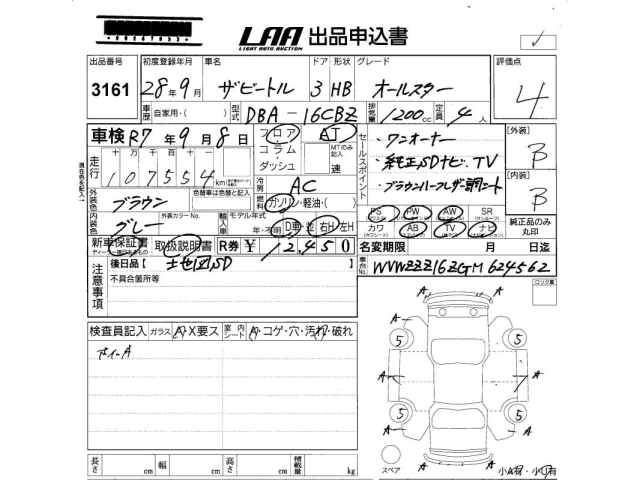 LAA 出品申込書
LIGHT AUTO AUCTION
出品番号 初度登録年月 車名 ドア 形状 グレード 評価点
3161 28年9月 ザビートル 3 HB オールスター 4
車歴 自家用・( ) 型式 DBA-16CBZ 排気量 1200cc 定員 4人
車検 R7年9月8日 フロア AT
コラム MTのみ記入
ダッシュ 速
走行 十万千百十
107554 km
現在色を記入
セールスポイント
・ワンオーナー
・純正SDナビ、TV
・ブラウンハーフレザー調シート
[外装] B
[内装] B
冷房 AC
外装色 ブラウン 色替車は色替と記入
燃料 ガソリン・軽油・( )
内装色 グレー 外装カラーNo.
輸入車 モデル年式 年・不明 D車・並 右H・左H
PS PW AW SR
カワ AB TV ナビ
純正品のみ丸印
新車保証書 取扱説明書 R券 ¥ 12,450
名変期限 月 日迄
後日品【 地図SD 】
車台No. WVWZZZ16ZGM624562
注意事項 不具合箇所等
ロック車
検査員記入 ガラス A・X要ス 室内シート A・コゲ・穴・汚れ・破れ
ホイールA
A A
5 5
A A
5 5
A A
スペア
長さ cm 幅 cm 高さ cm 積載量 kg
小A有・小U有